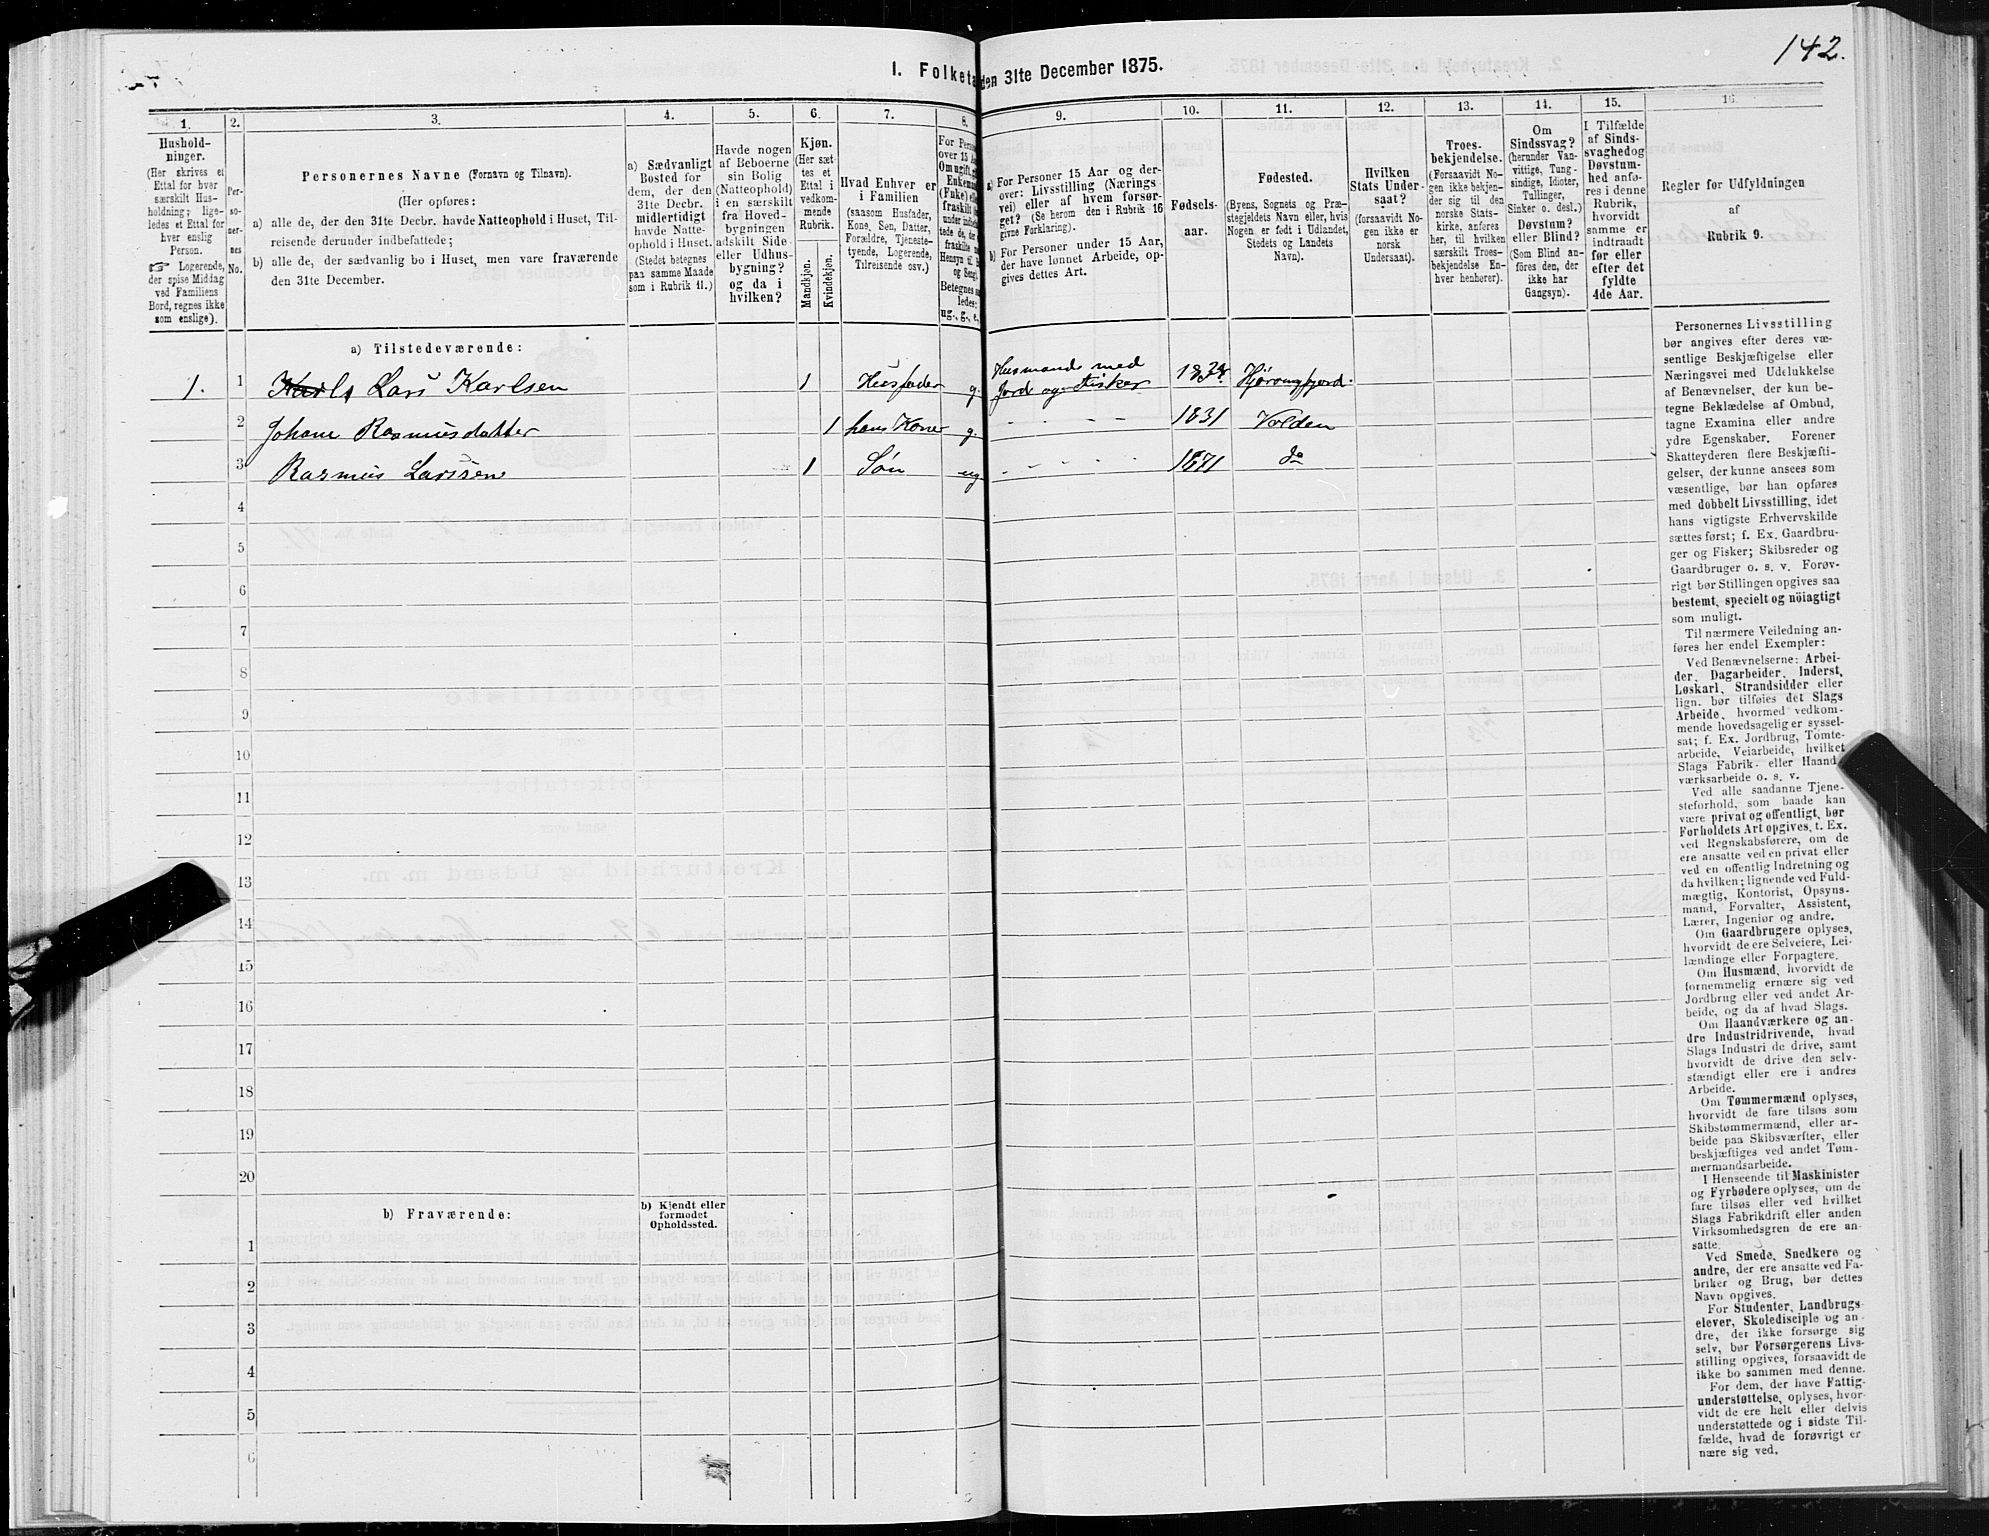 142.
I. Folketa
den 31te December 1875.
1. 2. 3. 4. 5. 6. 7. 8. 9. 10. 11. 12. 13. 14. 15. 16.
Hushold-
ninger.
(Her skrives et
Ettal for hver
særskilt Hus-
holdning; lige-
ledes et Ettal for
hver enslig
Person.
☞ Logerende,
der spise Middag
ved Familiens
Bord, regnes ikke
som enslige).
Per-
so-
ner-
nes
No.
Personernes Navne (Fornavn og Tilnavn).
(Her opføres:
a) alle de, der den 31te Decbr. havde Natteophold i Huset, Til-
reisende derunder indbefattede;
b) alle de, der sædvanlig bo i Huset, men vare fraværende
den 31te December.
a) Sædvanligt
Bosted for
dem, der den
31te Decbr.
midlertidigt
havde Natte-
ophold i Huset.
(Stedet betegnes
paa samme Maade
som i Rubrik 11.)
Havde nogen
af Beboerne
sin Bolig
(Natteophold)
i en særskilt
fra Hoved-
bygningen
adskilt Side-
eller Udhus-
bygning?
og da i
hvilken?
Kjøn.
(Her sæt-
tes et
Ettal i
vedkom-
mende
Rubrik.
Mandkjøn.
Kvindekjøn.
Hvad Enhver er
i Familien
(saasom Husfader,
Kone, Søn, Datter,
Forældre, Tjeneste-
tyende, Logerende,
Tilreisende osv.)
For Person
over 15 Aa
Om ugift, gi
Enkeman
(Enke) elle
fraskilt
under indbefat
tede de, der
fraskilte
Hensyn til B
og Seng
Betegnes saa
ledes:
ug., g., e.,
a) For Personer 15 Aar og der-
over: Livsstilling (Nærings
vei) eller af hvem forsør-
get? (Se herom den i Rubrik 16
givne Forklaring).
b) For Personer under 15 Aar,
der have lønnet Arbeide, op-
gives dettes Art.
Fødsels-
aar.
Fødested.
(Byens, Sognets og Præ-
stegjeldets Navn eller, hvis
Nogen er født i Udlandet,
Stedets og Landets
Navn).
Hvilken
Stats Under-
saat?
(forsaavidt No-
gen ikke er
norsk
Undersaat).
Troes-
bekjendelse.
(Forsaavidt No-
gen ikke bekjen-
der sig til den
norske Stats-
kirke, anføres
her, til hvilken
særskilt Troes-
bekjendelse En-
hver henhører).
Om
Sindssvag?
(herunder Van-
vittige, Tung-
sindige, Idioter,
Tullinger,
Sinker o. desl.)
Døvstum?
eller Blind?
(Som Blind an-
føres den, der
ikke har
Gangsyn).
I Tilfælde
af Sinds-
svaghed og
Døvstum-
hed anfø-
res i denne
Rubrik,
hvorvidt
samme er
indtraadt
før eller
efter det
fyldte
4de Aar.
Regler for Udfyldningen
af
Rubrik 9.
a) Tilstedeværende:
1. 1 Lars Karlsen 1 Husfader g. Husmand med Jord og Fisker 183 Hjørungfjord.
2 Johane Rasmusdatter 1 hans Kone g. - - - 1831 Volden
3 Rasmus Larssen 1 Søn ug - - - - - 1871 do
4
5
6
7
8
9
10
11
12
13
14
15
16
17
18
19
20
b) Fraværende:
b) Kjendt eller
formodet
Opholdssted.
1
2
3
4
5
6
Personernes Livsstilling
bør angives efter deres væ-
sentlige Beskjæftigelse eller
Næringsvei med Udelukkelse
af Benævnelser, der kun be-
tegne Beklædelse af Ombud,
tagne Examina eller andre
ydre Egenskaber. Forener
Skatteyderen flere Beskjæfti-
gelser, der kunne ansees som
væsentlige, bør han opføres
med dobbelt Livsstilling, idet
hans vigtigste Erhvervskilde
sættes først; f. Ex. Gaardbru-
ger og Fisker; Skibsreder og
Gaardbruger o. s. v. Forøv-
rigt bør Stillingen opgives saa
bestemt, specielt og nöiagtigt
som muligt.
Til nærmere Veiledning an-
føres her endel Exempler:
Ved Benævnelserne: Arbei-
der, Dagarbeider, Inderst,
Løskarl, Strandsidder eller
lign. bør tilføies det Slags
Arbeide, hvormed vedkom-
mende hovedsagelig er syssel-
sat; f. Ex. Jordbrug, Tømte-
arbeide, Veiarbeide, hvilket
Slags Fabrik- eller Haand-
værksarbeide o. s. v.
Ved alle saadanne Tjene-
steforhold, som baade kan
være privat og offentligt, bør
Forholdets Art opgives, t. Ex.
ved Regnskabsførere, om de
ere ansatte ved en privat eller
ved en offentlig Indretning og
da hvilken; lignende ved Fuld-
mægtig, Kontorist, Opsyns-
mand, Forvalter, Assistent,
Lærer, Ingeniør og andre.
Om Gaardbrugere oplyses,
hvorvidt de ere Selveiere, Lei-
lændinge eller Forpagtere.
Om Husmænd, hvorvidt de
fornemmelig ernære sig ved
Jordbrug eller ved andet Ar-
beide, og da af hvad Slags.
Om Haandværkere og an-
dre Industridrivende, hvad
Slags Industri de drive, samt
hvorvidt de drive den selv-
stændigt eller ere i andres
Arbeide.
Om Tømmermænd oplyses,
hvorvidt de fare tilsøs som
Skibstømmermænd, eller ar-
beide paa Skibsværfter, eller
beskjæftiges ved andet Tøm-
mermandsarbeide.
I Henseende til Maskinister
og Fyrbødere oplyses, om de
fare tilsøs eller ved hvilket
Slags Fabrikdrift eller anden
Virksomhedsgren de ere an-
satte.
Ved Smede, Snedkere og
andre, der ere ansatte ved Fa-
briker og Brug, bør dettes
Navn opgives.
For Studenter, Landbrugs-
elever, Skoledisciple og an-
dre, der ikke forsørge sig
selv, bør Forsørgerens Livs-
stilling opgives, forsaavidt de
ikke bo sammen med denne.
For dem, der have Fattig-
understøttelse, oplyses, hvor-
vidt de ere helt eller delvis
understøttede og i sidste Til-
fælde, hvad de forøvrigt er-
nære sig ved.